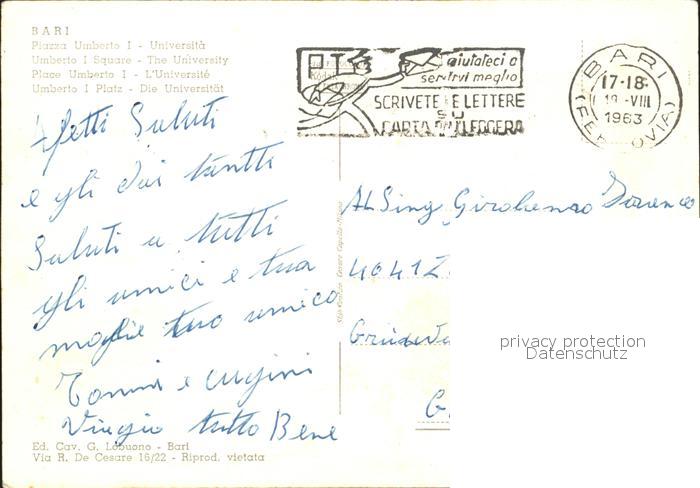 BARI
Piazza Umberto I - Università
Umberto I Square - The University
Place Umberto I - L'Université
Umberto I Platz - Die Universität
Afetti Saluti
e gli dai tantti
Saluti a tutti
gli amici e tua
moglie tuo amico
e cugini
Viagio tutto Bene
Ed. Cav. G. Lobuono - Bari
Via R. De Cesare 16/22 - Riprod. vietata
PT
aiutateci a
servirvi meglio
SCRIVETE LE LETTERE
SU
CARTA PIÙ LEGGERA
BARI
17-18
19 -VIII
1963
(FERROVIA)
Al Sing
4041
privacy protection
Datenschutz